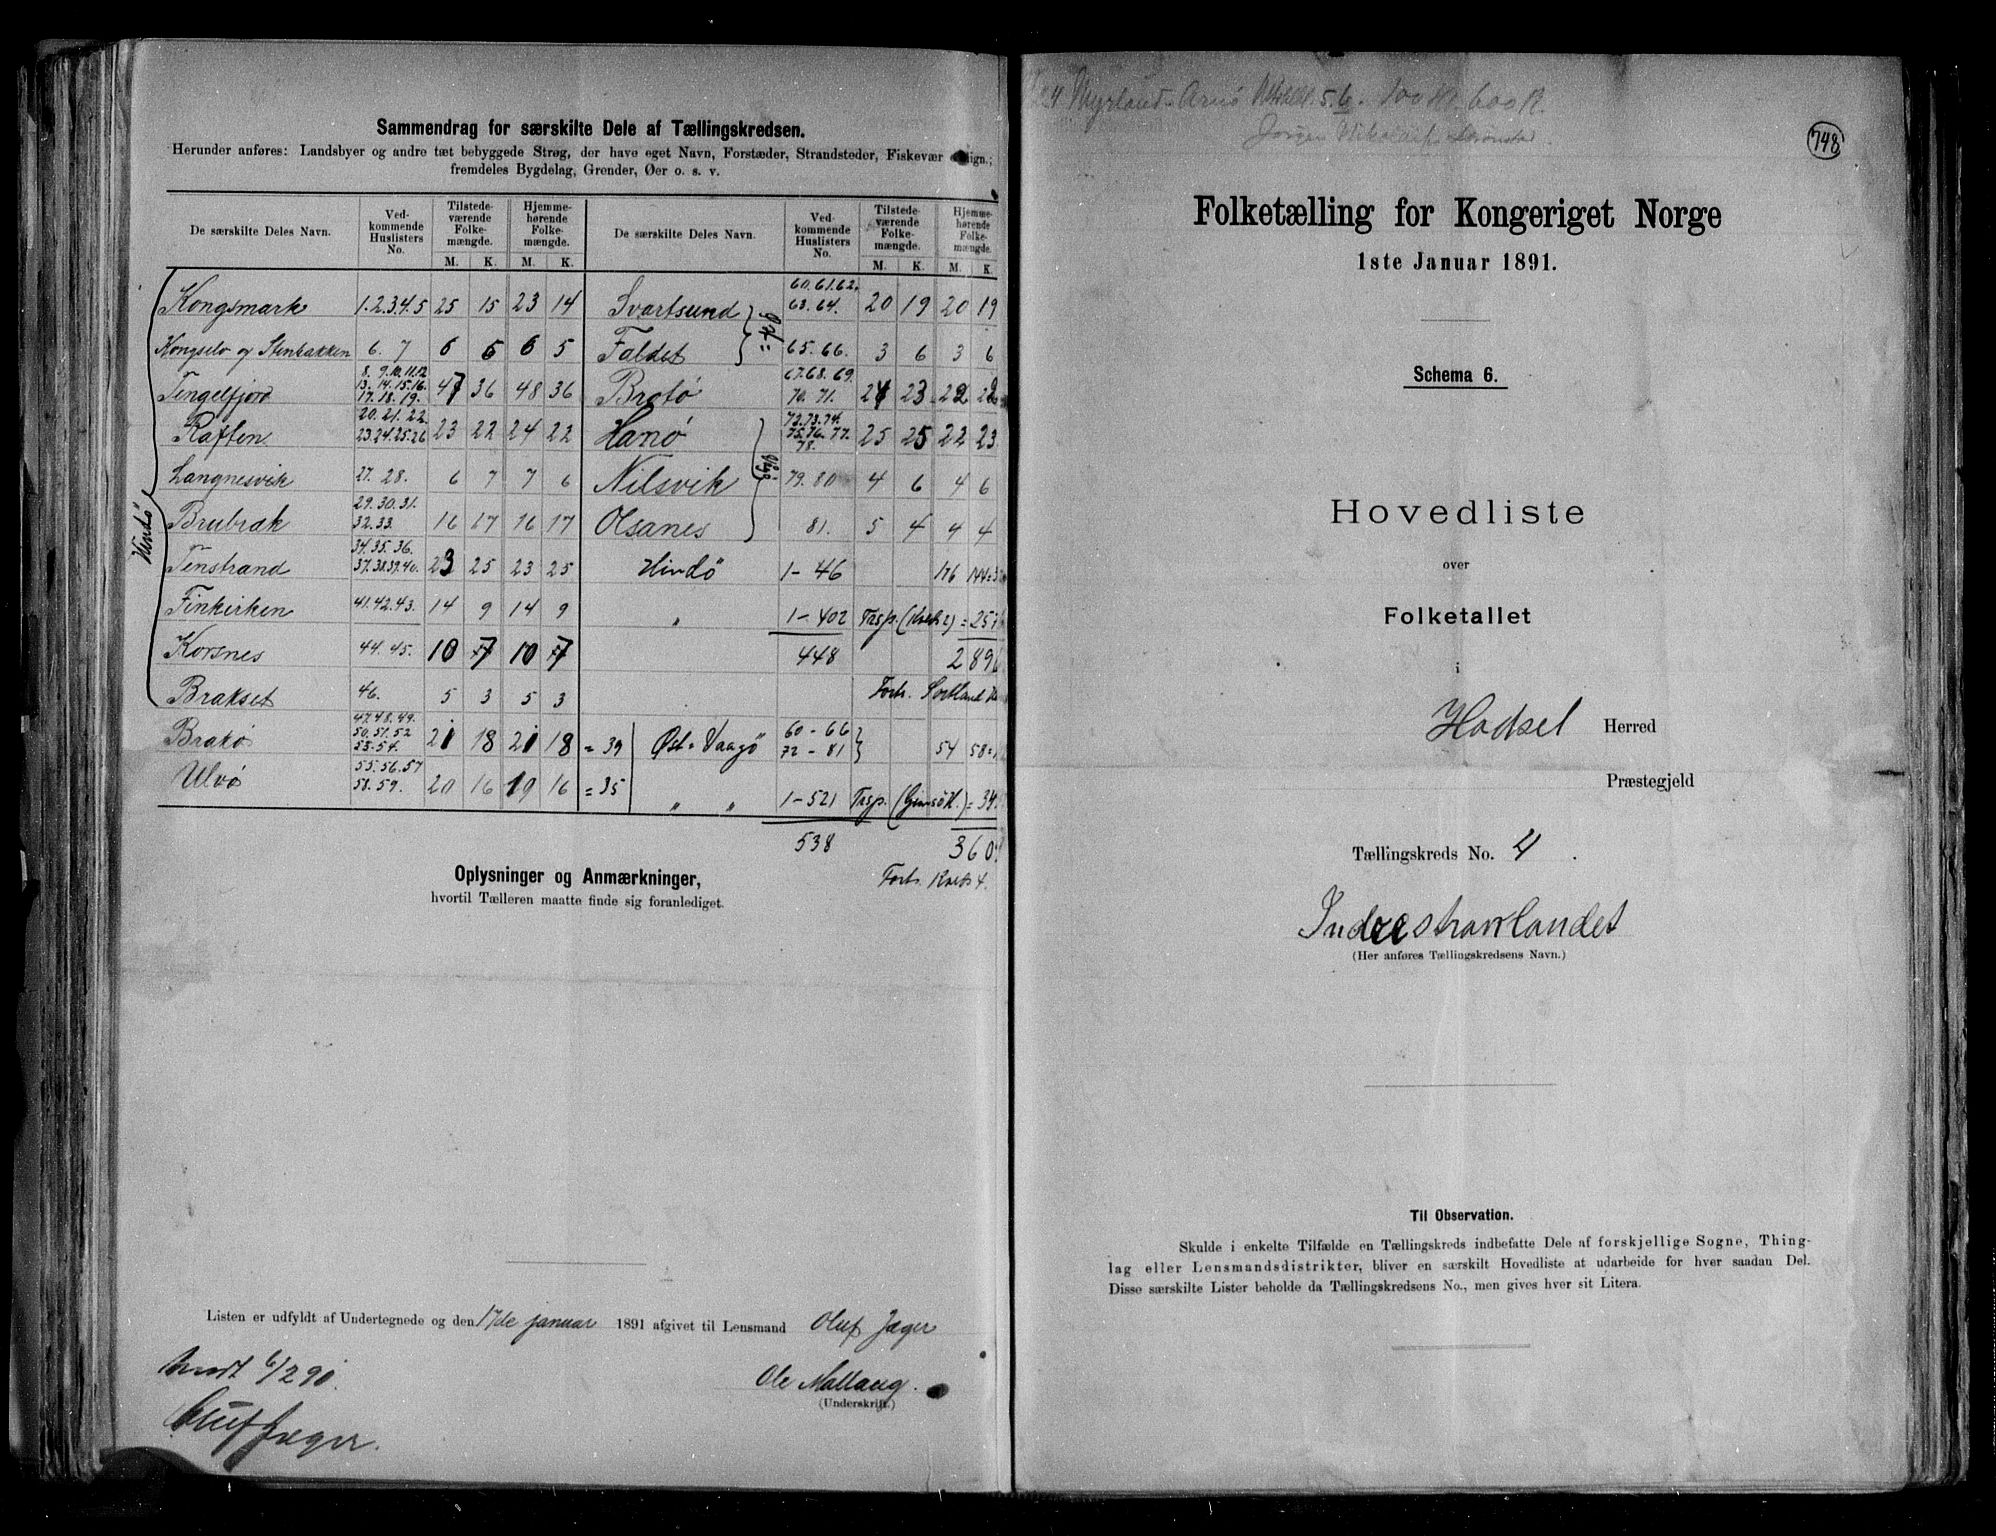 Sammendrag for særskilte Dele af Tællingskredsen.
Herunder anføres: Landsbyer og andre tæt bebyggede Strøg, der have eget Navn, Forstæder, Strandsteder, Fiskevær o. lign.;
fremdeles Bygdelag, Grender, Øer o. s. v.
De særskilte Deles Navn. | Vedkommende Huslisters No. | Tilstedeværende Folkemængde. M. K. | Hjemmehørende Folkemængde. M. K. | De særskilte Deles Navn. | Vedkommende Huslisters No. | Tilstedeværende Folkemængde. M. K. | Hjemmehørende Folkemængde. M. K.
Hindö
Kongsmark 1.2.3.4.5 25 15 23 14 Svartsund 60.61.62. 63.64. 20 19 20 19
Kongselv og Stenbakken 6. 7 6 6 6 5 Faldet 65.66. 3 6 3 6
Tengelfjord 8. 9.10.11.12 13.14.15.16. 17.18.19. 47 36 48 36 Brotö 67.68.69. 70.71. 24 23 22 22
Raften 20.21.22. 23.24.25.26 23 22 24 22 Hanö 72.73.74. 75.76.77. 78. 25 25 22 23
Langnesvik 27. 28. 6 7 7 6 Nilsvik 79.80 4 6 4 6
Brubrak 29.30.31. 32.33. 16 17 16 17 Olsanes 81. 5 4 4 4
Tenstrand 34.35.36. 37.38.39.40. 23 25 23 25 Hindö 1-46 176 144
Finkirken 41.42.43. 14 9 14 9 " 1-402 Trsp.
Korsnes 44.45. 10 7 10 7 448 2896
Brakset 46. 5 3 5 3 Forts. Sortland
Brakö 47.48.49. 50.51.52 53.54. 21 18 21 18 = 39 Øst-Vaagö 60-66 72-81 54 58
Ulvö 55.56.57 58.59. 20 16 19 16 = 35 " " 1-521 Trsp. (Gimsö H.) = 34
538 360
Forts. Kreds 4.
Oplysninger og Anmærkninger,
hvortil Tælleren maatte finde sig foranlediget.
Listen er udfyldt af Undertegnede og den 17de januar 1891 afgivet til Lensmand Oluf Jæger
Ole Mollaug.
(Underskrift.)
6/2 90.
Oluf Jæger.
4 Myrland - Arnö 5.6. 100 Kr. 600 R.
Jörgen
748
Folketælling for Kongeriget Norge
1ste Januar 1891.
Schema 6.
Hovedliste
over
Folketallet
i
Hadsel Herred
Præstegjeld
Tællingskreds No. 4.
Indrestraumlandet
(Her anføres Tællingskredsens Navn.)
Til Observation.
Skulde i enkelte Tilfælde en Tællingskreds indbefatte Dele af forskjellige Sogne, Thing-
lag eller Lensmandsdistrikter, bliver en særskilt Hovedliste at udarbeide for hver saadan Del.
Disse særskilte Lister beholde da Tællingskredsens No., men gives hver sit Litera.